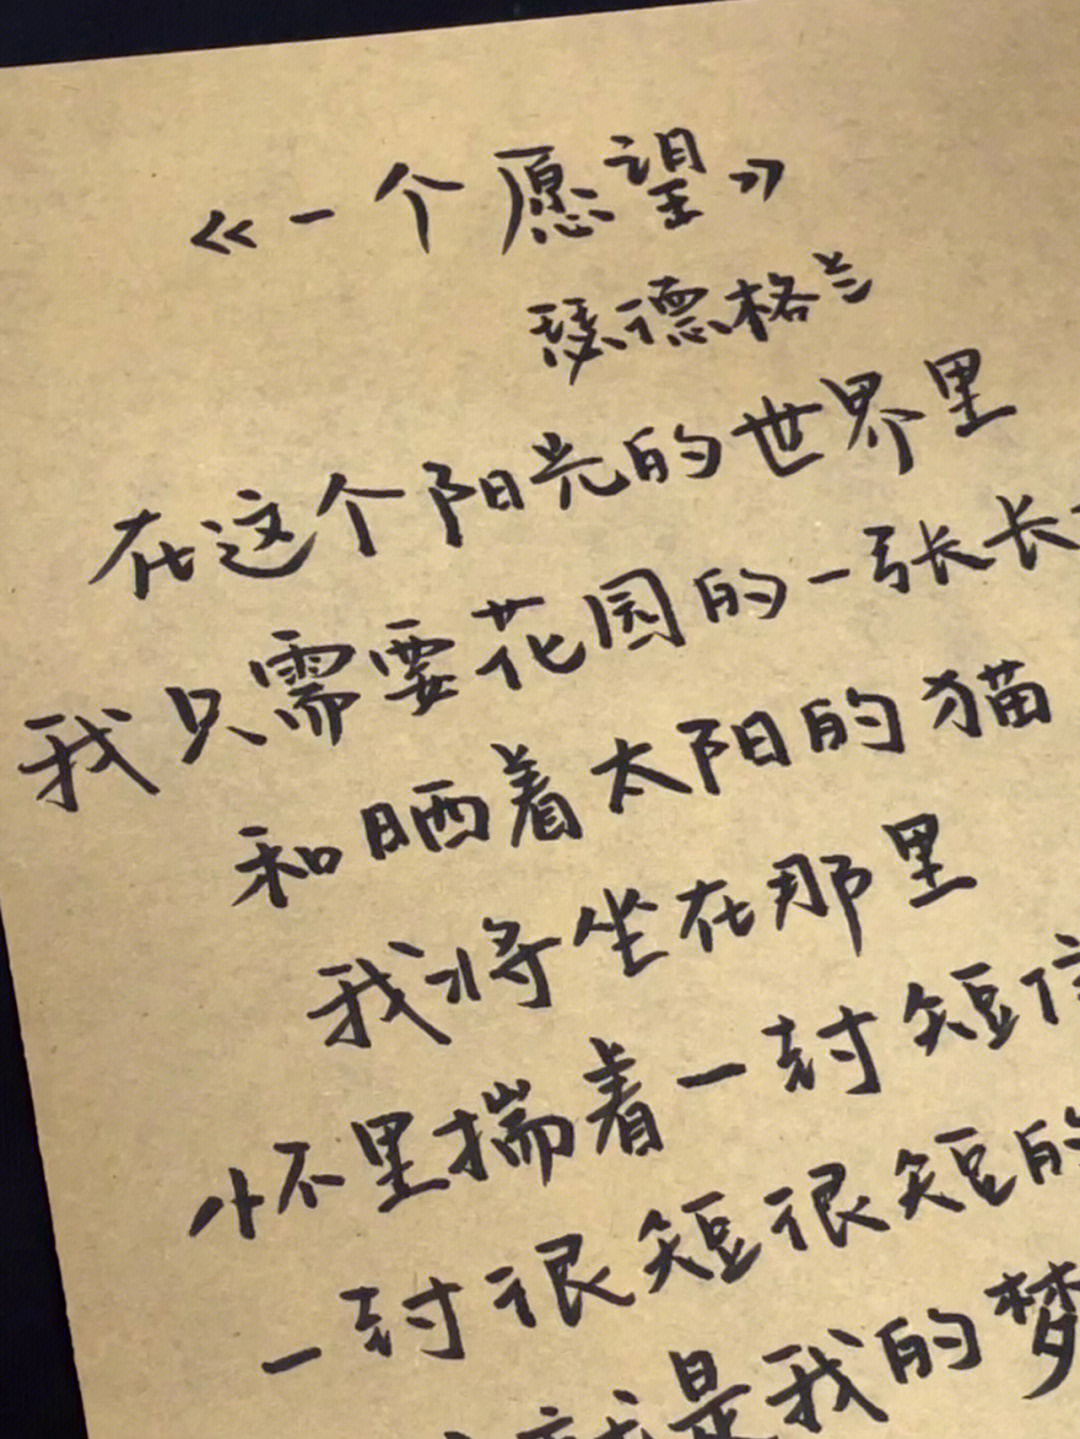 《一个愿望》
瑟德格兰
在这个阳光的世界里
我只需要花园的一张长
和晒着太阳的猫
我将坐在那里
怀里揣着一封短
一封很短很短的
就是我的梦